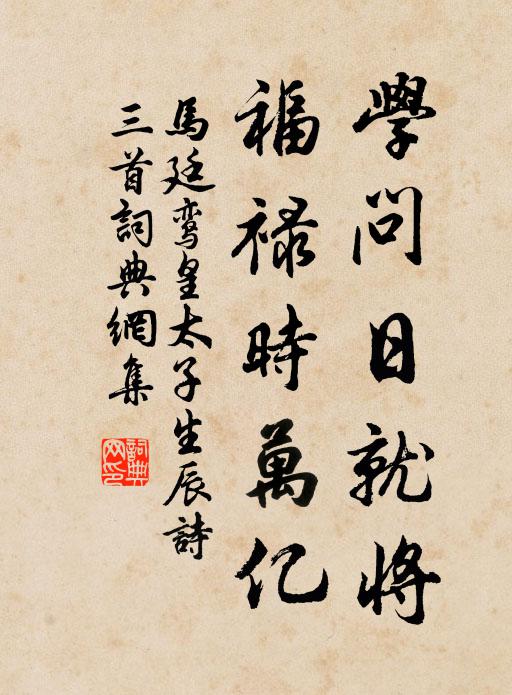 學問日就將
福祿時萬亿
馬廷鸾皇太子生辰詩
三首詞典網集
詞典网印